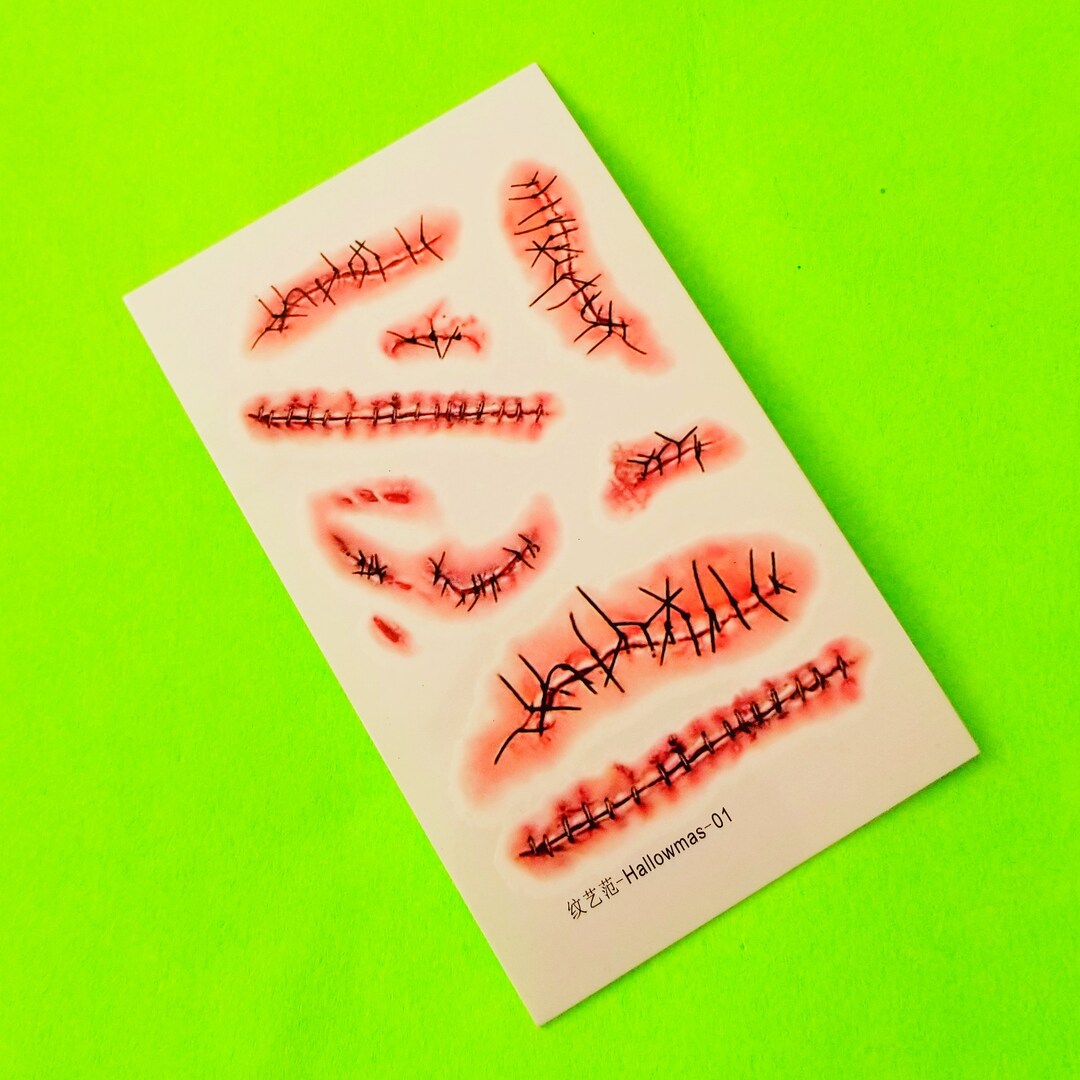 纹艺范-Hallowmas-01